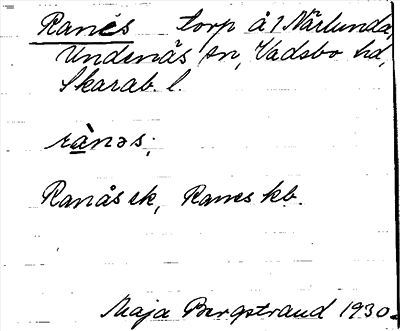 Ranés torp å 1 Närlunda,
Undenäs sn, Vadsbo hd,
Skarab. l.
rànəs;
Ranås ek, Ranes kb.
Maja Bergstrand 1930.